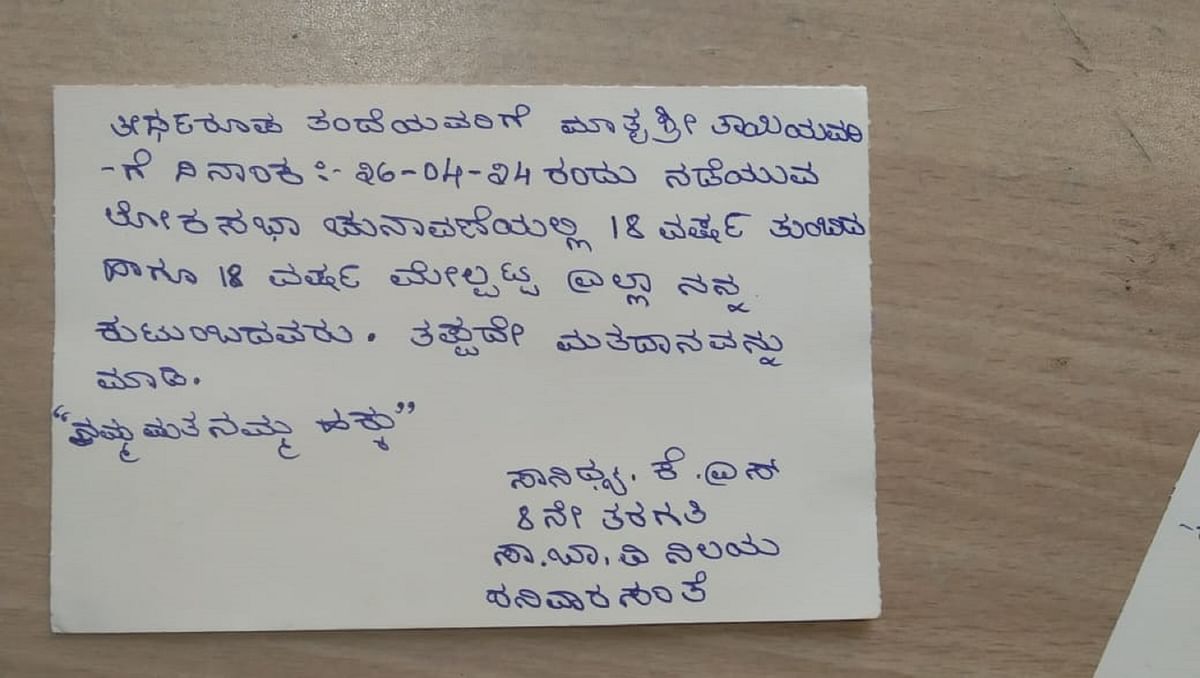 ತೀರ್ಥರೂಪ ತಂದೆಯವರಿಗೆ ಮಾತೃಶ್ರೀ ತಾಯಿಯವರಿ
-ಗೆ ದಿನಾಂಕ :- 26-04-24 ರಂದು ನಡೆಯುವ
ಲೋಕಸಭಾ ಚುನಾವಣೆಯಲ್ಲಿ 18 ವರ್ಷ ತುಂಬಿದ
ಹಾಗೂ 18 ವರ್ಷ ಮೇಲ್ಪಟ್ಟ ಎಲ್ಲಾ ನನ್ನ
ಕುಟುಂಬದವರು. ತಪ್ಪದೇ ಮತದಾನವನ್ನು
ಮಾಡಿ.
“ನಮ್ಮ ಮತ ನಮ್ಮ ಹಕ್ಕು”
ಸಾನಿಧ್ಯ. ಕೆ .ಎಸ್
8 ನೇ ತರಗತಿ
ಸಾ.ಬಾ.ವಿ ನಿಲಯ
ಶನಿವಾರಸಂತೆ